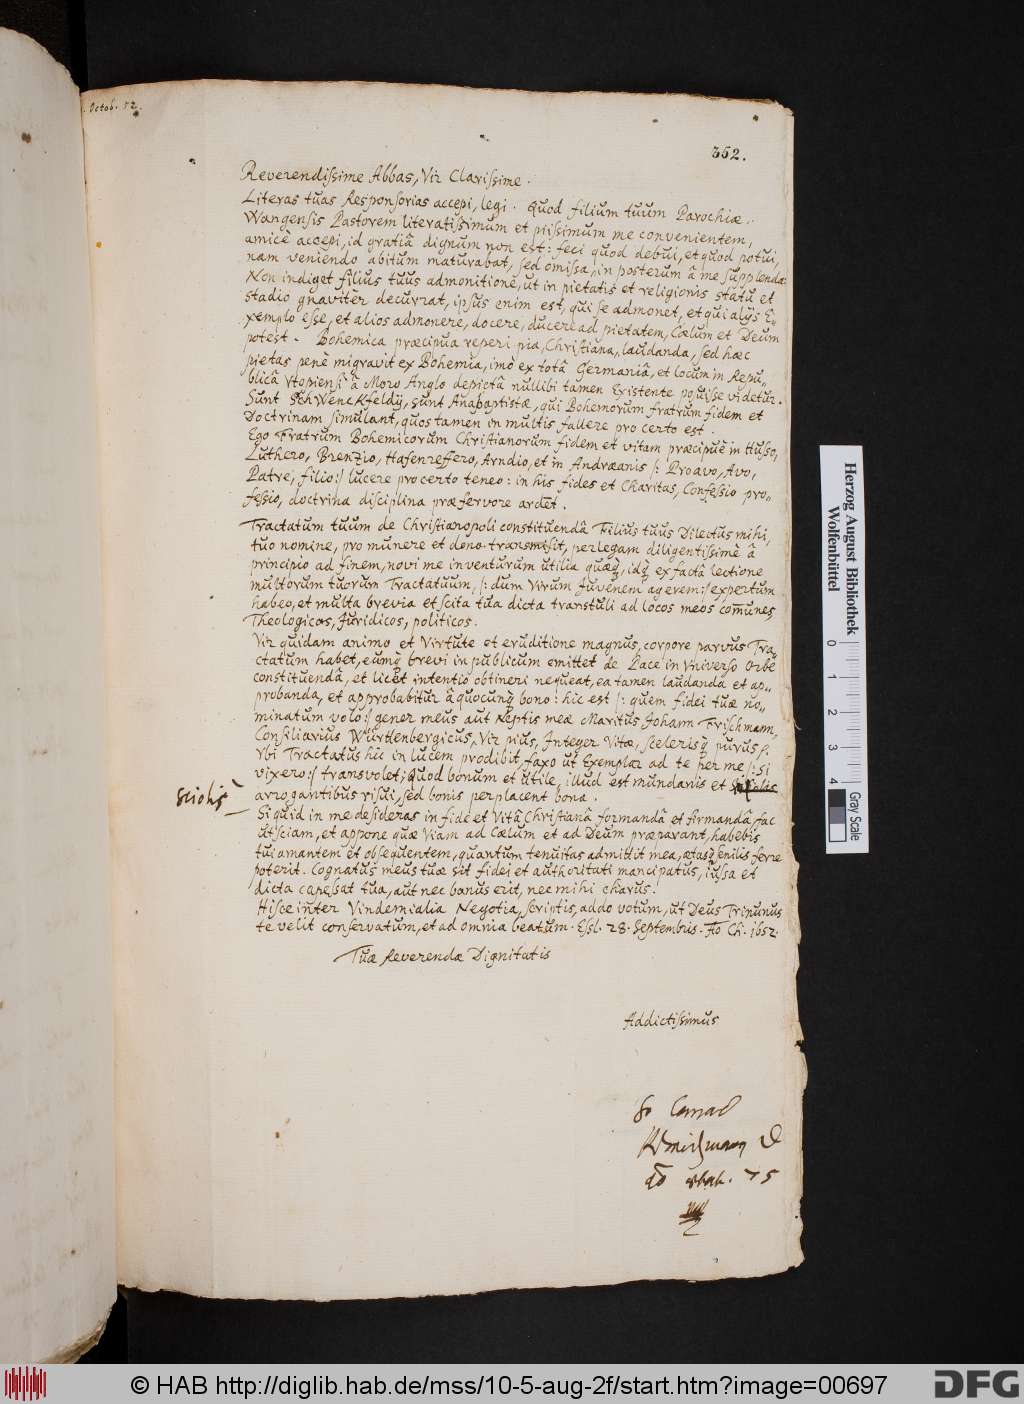 Octob. 52.
352.
Reverendissime Abbas, Vir Clarissime.
Literas tuas Responsorias accepi, legi. Quod filium tuum Parochiæ
Wangensis Pastorem literatissimum et piissimum me convenientem,
amicè accepi, id gratiâ dignum non est: feci quod debui, et quod potui,
nam veniendo abitum maturabat, sed omissa, in posterum â me supplenda.
Non indiget filius tuus admonitione, ut in pietatis et religionis statu et
stadio gnaviter decurrat, ipsus enim est, qui se admonet, et qui alijs E-
xemplo esse, et alios admonere, docere, ducere ad pietatem, Cœlum et Deum
potest. Bohemica præcipua reperi pia, Christiana, laudanda, sed hæc
pietas penè migravit ex Bohemia, imò ex totâ Germaniâ, et locum in Repu-
blicâ Utopiensi â Moro Anglo depictâ nullibi tamen Existente posuisse videtur.
Sunt Schwenckfeldij, sunt Anabaptistæ, qui Bohemorum fratrum fidem et
Doctrinam simulant, quos tamen in multis fallere pro certo est.
Ego Fratrum Bohemicorum Christianorum fidem et vitam præcipuè in Husso,
Luthero, Brenzio, Hafenreffero, Arndio, et in Andræanis /: Proavo, Avo,
Patre, filio:/ lucere pro certo teneo: in his fides et Charitas, Confessio pro-
fessio, doctrina disciplina præfervore ardet.
Tractatum tuum de Christianopoli constituendâ Filius tuus Dilectus mihi,
tuo nomine, pro munere et dono transmisit, perlegam diligentissimè â
principio ad finem, novi me inventurum utilia quæq, idq ex facta lectione
multorum tuorum Tractatuum, /: dum Virum Juvenem agerem:/ expertum
habeo, et multa brevia et scita tua dicta transtuli ad locos meos comunes
Theologicos, Juridicos, politicos.
Vir quidam animo et Virtute et eruditione magnus, corpore parvus Tra-
ctatum habet, eumq brevi in publicum emittet de Pace in Universo Orbe
constituendâ, et licet intentio obtineri nequeat, ea tamen laudanda et ap-
probanda, et approbabitur â quocunq bono: hic est /: quem fidei tuæ no-
minatum volo:/ gener meus aut Neptis meæ Maritus Johann Frischmann,
Consiliarius Würtenbergicus, Vir pius, Integer Vitæ, scelerisq purus.
Ubi Tractatus hic in lucem prodibit, faxo ut Exemplar ad te per me /: si
vixero:/ transvolet; Quod bonum et utile, illud est mundanis et
sciolis
arrogantibus risui, sed bonis perplacent bona.
Si quid in me desideras in fide et Vitâ Christianâ formandâ et firmandâ, fac
ut sciam, et appone quæ Viam ad Cœlum et ad Deum præparant, habebis
tui amantem et obsequentem, quantum tenuitas admittit mea, ætasq senilis ferre
poterit. Cognatus meus tuæ sit fidei et authoritati mancipatus, iussa et
dicta capessat tua, aut nec bonus erit, nec mihi charus.
Hisce inter Vindemialia Negotia, scriptis, addo votum, ut Deus Triunus
te velit conservatum, et ad omnia beatum. Essl. 28. Septembris. Ao Ch. 1652.
Tuæ Reverendæ Dignitatis
Addictissimus
Conrad
D
75
Herzog August Bibliothek
Wolfenbüttel
0 1 2 3 4
Gray Scale
© HAB http://diglib.hab.de/mss/10-5-aug-2f/start.htm?image=00697
DFG